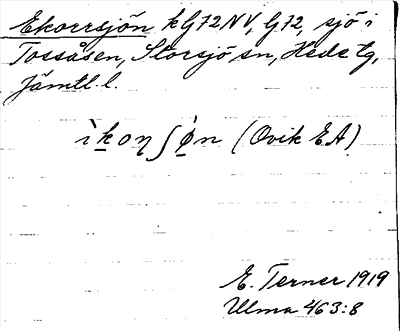 Ekorrsjön kG72NV, G72, sjö i
Tossåsen, Storsjö sn, Hede tg,
Jämtl. l.
ìkoŋʃǿn (Ovik EA)
E. Terner 1919
Ulma 463:8